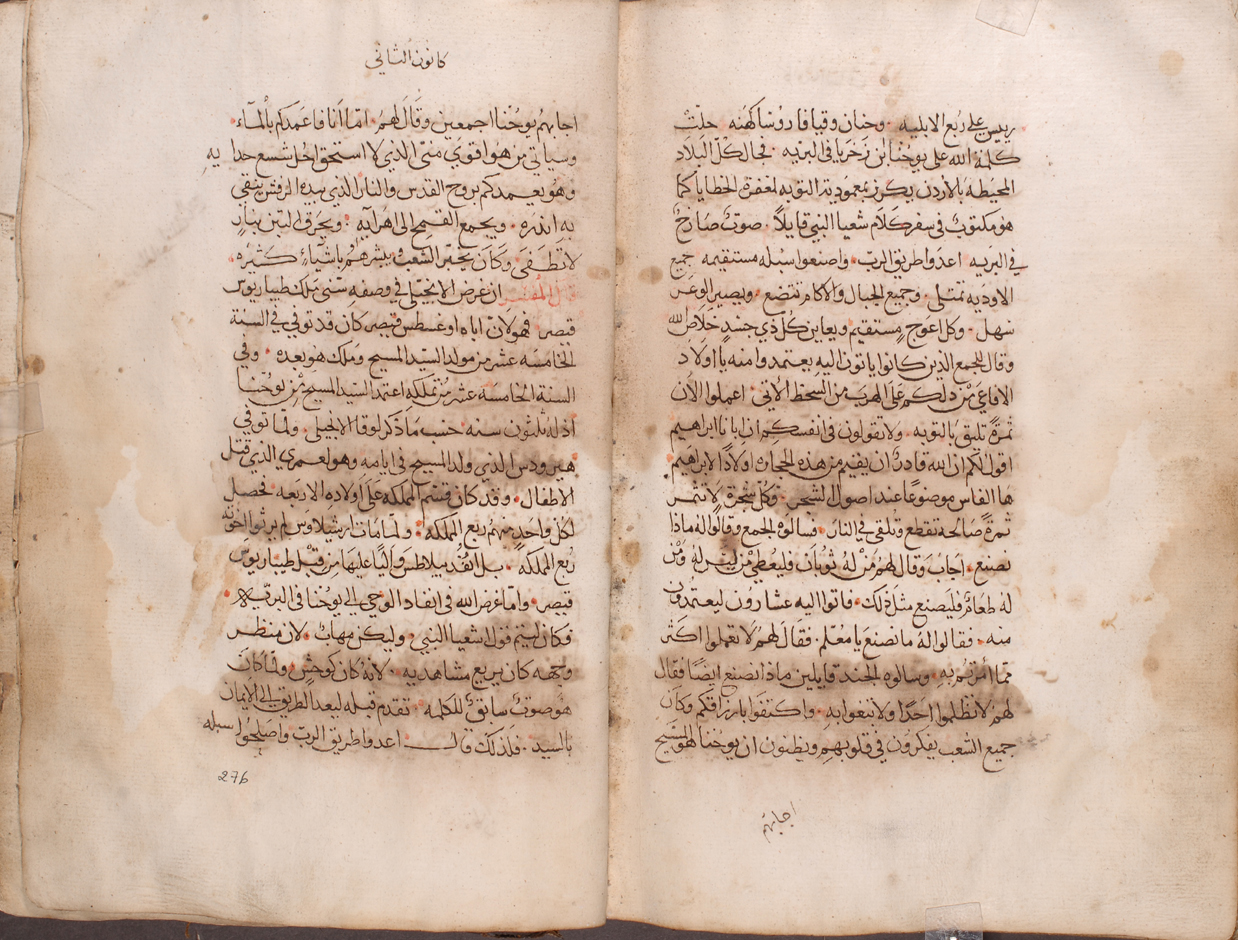 رييس على ربع الابلييه . وحنان وقيافا روسا كهنه حلت
كلمة الله على يوحنا ابن زخريا في البريه . فجال كل البلاد
المحيطه بالاردن يكرز بمعمودية التوبه لمغفرة الخطايا كما
هو مكتوب في سفر كلام شعيا النبي قايلاً . صوت صارخ
في البريه اعدوا طريق الرب . واصنعوا سبله مستقيمه جميع
الاوديه تمتلى . وجميع الجبال والاكام تتضع . ويصير الوعر
سهل . وكل اعوج مستقيم ويعاين كل ذي جسد خلاص الله
وقال للجمع الذين كانوا ياتون اليه يعتمدوا منه يا اولاد
الافاعي من دلكم على الهرب من السخط الاتي . اعملوا الان
ثمرة تليق بالتوبه . ولا تقولون في انفسكم ان ابانا ابراهيم
اقول لكم ان الله قادر ان يقيم من هذه الحجاره اولاداً لابراهيم .
ها الفاس موضوعاً عند اصول الشجر . وكل شجرة لا تثمر
ثمرةً صالحه تقطع وتلقى في النار . فسالوه الجمع وقالوا له ماذا
نصنع . اجاب وقال لهم من له ثوبان فليعطي من ليس له ومن
له طعام فليصنع مثل ذلك . فاتوا اليه عشارون ليعتمدون
منه . فقالوا له ما نصنع يا معلم . فقال لهم لا تعملوا اكثر
مما أمرتم به . وسالوه الجند قايلين ماذا نصنع ايضاً فقال
لهم لا تظلموا احداً ولا تبغوا به . واكتفوا بارزاقكم وكان
جميع الشعب يفكرون في قلوبهم ويظنون ان يوحنا هو المسيح
اجابهم
كانون الثاني
اجابهم يوحنا اجمعين وقال لهم . اما انا فاعمدكم بالماء .
وسياتي من هو اقوي مني الذي لا استحق احل شسع حدايه
وهو يعمدكم بروح القدس والنار الذي بيده الرفش ينقي
به اندره . ويجمع القمح الى اهرايه . ويحرق التبن بنار
لا تطفى . وكان يخبر الشعب ويبشرهم باشياء كثيره .
قال المفسر ان غرض الانجيلي في وصفه سني ملك طيباريوس
قيصر فهو لان اباه اوغسطس قيصر كان قد توفي في السنة
الخامسه عشر من مولد السيد المسيح وملك هو بعده . وفي
السنة الخامسة عشر من تملكه اعتمد السيد المسيح من يوحنا
اذ له ثلثون سنه . حسب ما ذكر لوقا الانجيلي . ولما توفي
هيرودس الذي ولد المسيح في ايامه وهو لعمري الذي قتل
الاطفال . وقد كان قسم المملكه على اولاده الاربعه فحصل
لكل واحد منهم ربع المملكه . ولما مات ارشيلاوس لم يرثوا اخوته
ربع المملكه . بل انفذ بيلاطس والياً عليها من قبل طيباريوس
قيصر . واما غرض الله في انفاد الوحي الى يوحنا في البريه .
فكان ليتم قول اشعيا النبي . وليكن مهاب . لان منظر
وجهه كان يريع مشاهديه . لانه كان كوحش . ولما كان
هو صوت سابق للكلمه . تقدم قبله ليعد الطريق الى الايمان
بالسيد . فلذلك قال اعدوا طريق الرب واصلحوا سبله
276